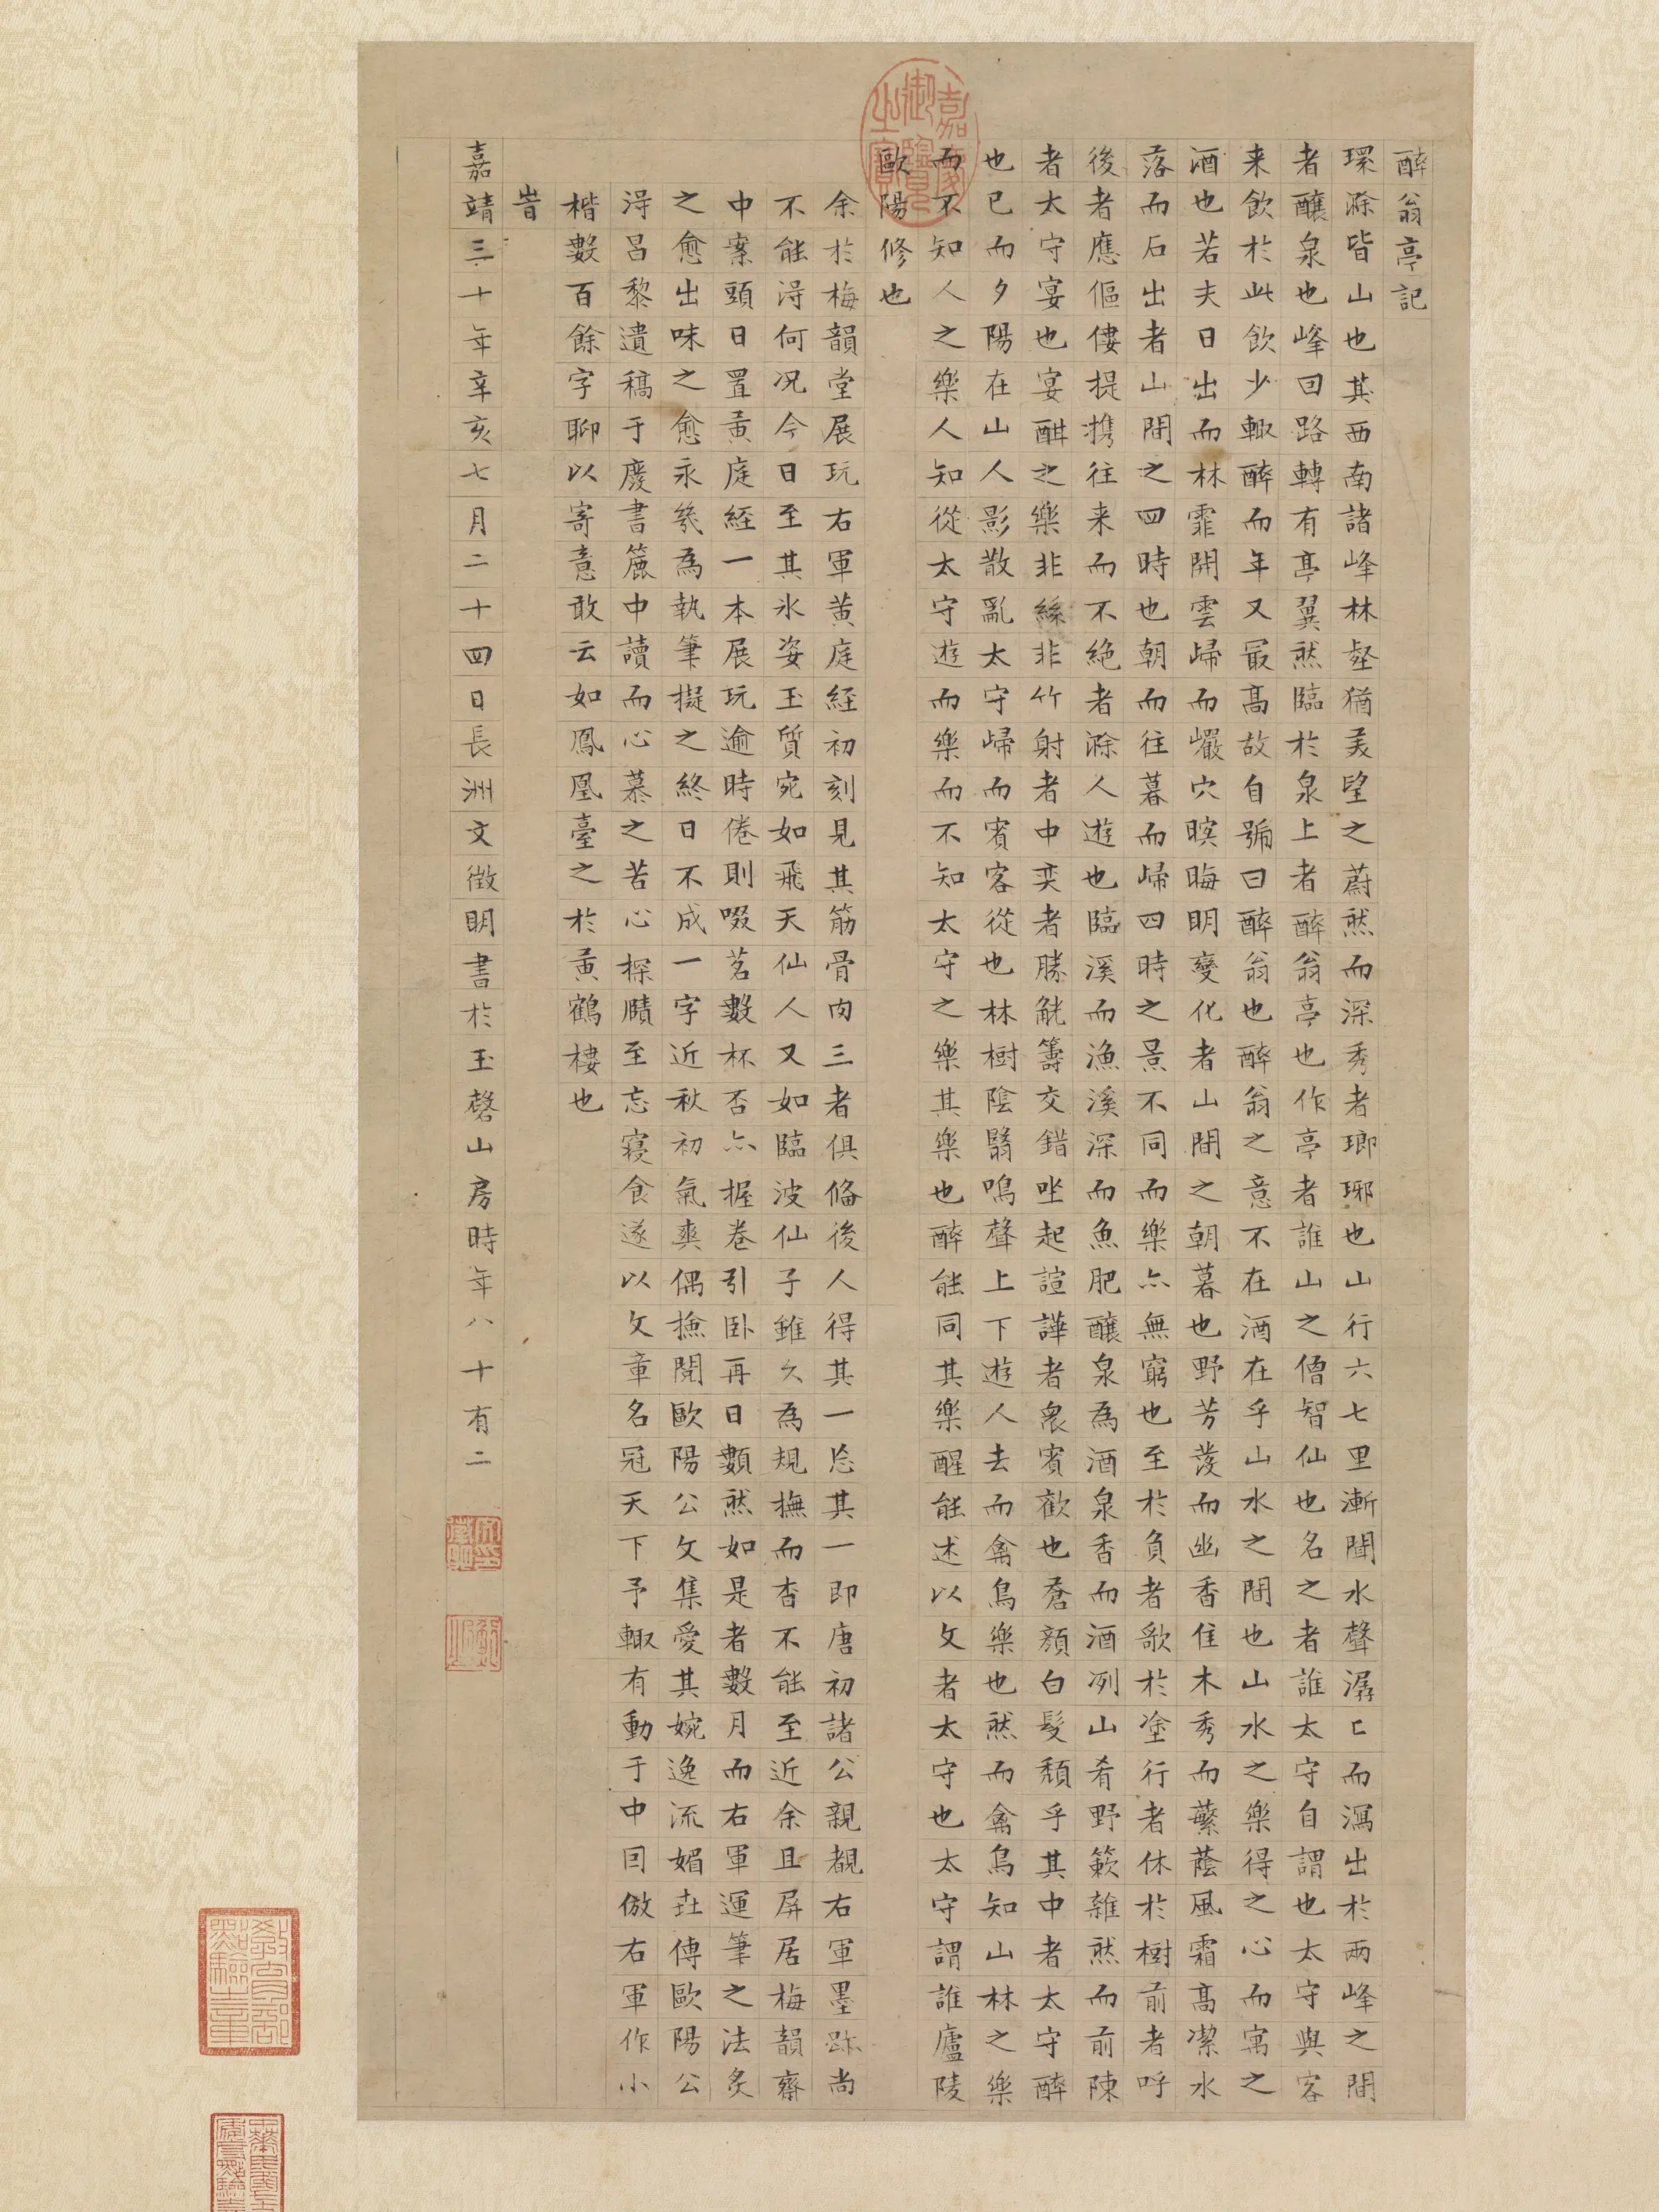 醉翁亭記
環滁皆山也其西南諸峰林壑猶美望之蔚然而深秀者瑯琊也山行六七里漸聞水聲潺〻而瀉出於兩峰之間
者釀泉也峰回路轉有亭翼然臨於泉上者醉翁亭也作亭者誰山之僧智仙也名之者誰太守自謂也太守與客
来飲於此飲少輒醉而年又最高故自號曰醉翁也醉翁之意不在酒在乎山水之間也山水之樂得之心而寓之
酒也若夫日出而林霏開雲歸而巖穴暝晦明變化者山間之朝暮也野芳發而幽香佳木秀而蘩蔭風霜高潔水
落而石出者山間之四時也朝而往暮而歸四時之景不同而樂亦無窮也至於負者歌於塗行者休於樹前者呼
後者應傴僂提携往来而不絶者滁人遊也臨溪而漁溪深而魚肥釀泉為酒泉香而酒冽山肴野蔌雜然而前陳
者太守宴也宴酣之樂非絲非竹射者中奕者勝觥籌交錯坐起諠譁者衆賓歡也蒼顔白髮頹乎其中者太守醉
也已而夕陽在山人影散亂太守歸而賓客從也林樹陰翳鳴聲上下遊人去而禽鳥樂也然而禽鳥知山林之樂
而不知人之樂人知從太守遊而樂而不知太守之樂其樂也醉能同其樂醒能述以文者太守也太守謂誰廬陵
歐陽修也
余於梅韻堂展玩右軍黄庭經初刻見其筋骨肉三者俱備後人得其一忘其一即唐初諸公親覩右軍墨跡尚
不能淂何况今日至其氷姿玉質宛如飛天仙人又如臨波仙子雖久為規撫而杳不能至近余且屏居梅韻齋
中案頭日置黄庭経一本展玩逾時倦則啜茗數杯否亦握卷引卧再日數然如是者數月而右軍運筆之法炙
之愈出味之愈永幾為執筆擬之終日不成一字近秋初氣爽偶撿閱歐陽公文集愛其婉逸流媚世傳歐陽公
淂昌黎遺稿于廢書簏中讀而心慕之苦心探賾至忘寢食遂以文章名冠天下予輒有動于中囙倣右軍作小
楷數百餘字聊以寄意敢云如鳳凰臺之於黄鶴樓也
旹
嘉靖三十年辛亥七月二十四日長洲文徴明書於玉磬山房時年八十有二
嘉慶御覽之寶